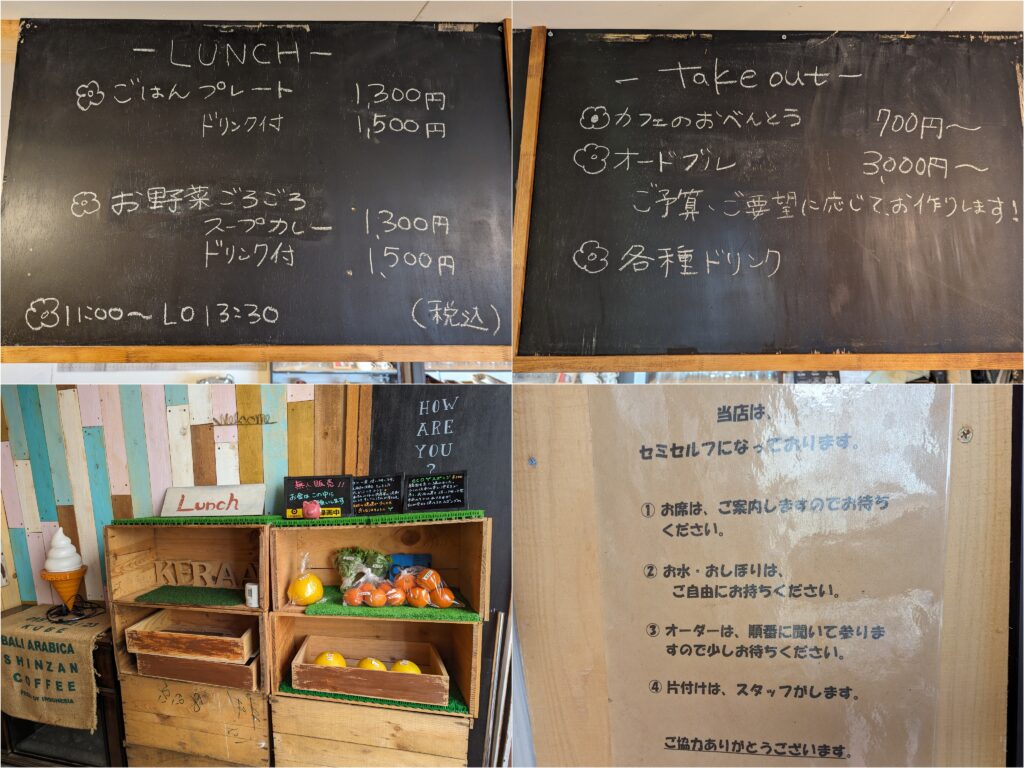 - LUNCH -
ごはんプレート 1,300円
ドリンク付 1,500円
お野菜ごろごろ
スープカレー 1,300円
ドリンク付 1,500円
11:00～ LO 13:30 (税込)
- Take out -
カフェのおべんとう 700円～
オードブル 3,000円～
ご予算、ご要望に応じて、お作りします!
各種ドリンク
HOW
ARE
YOU
?
Welcome
Lunch
無人販売!!
お金はこの中に
KERAA
BALI ARABICA
SHINZAN
COFFEE
当店は、
セミセルフになっております。
① お席は、ご案内しますのでお待ち
ください。
② お水・おしぼりは、
ご自由にお持ちください。
③ オーダーは、順番に聞いて参りま
すので少しお待ちください。
④ 片付けは、スタッフがします。
ご協力ありがとうございます。